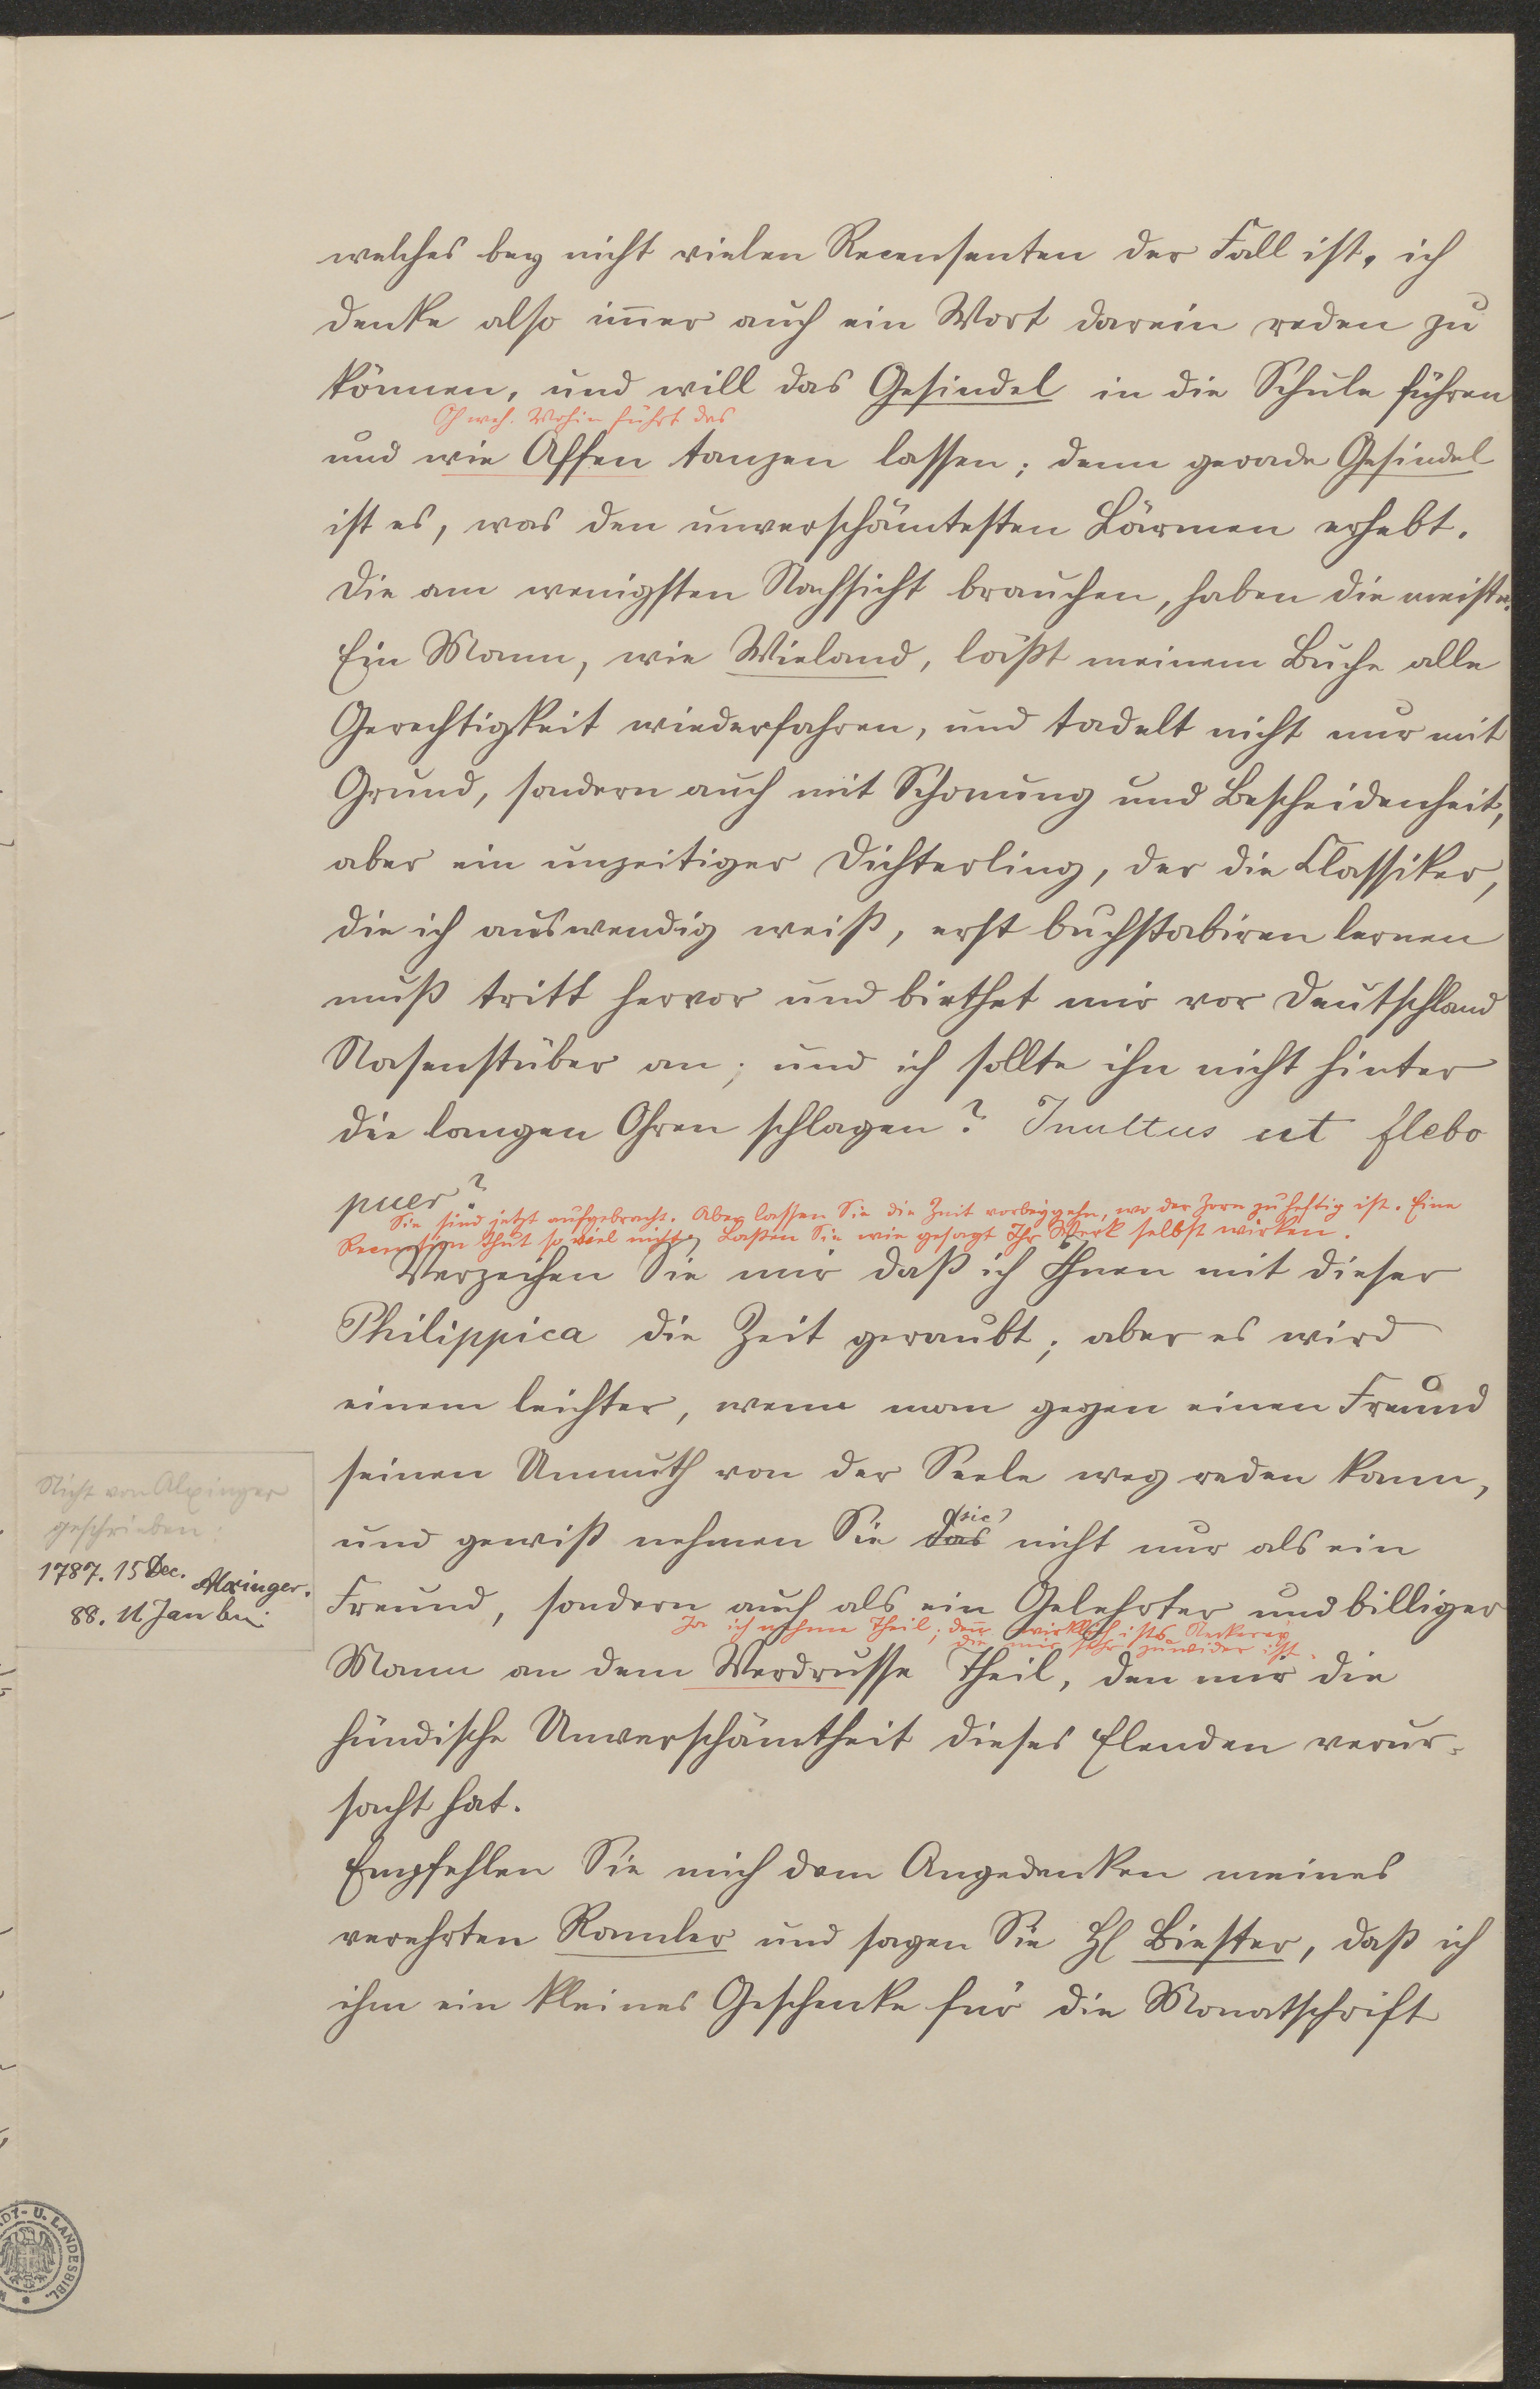 welches bey nicht vielen Recensenten der Fall ist, ich
denke also im̄er auch ein Wort darein reden zu
können, und will das Gesindel in die Schule führen
Oh weh. Wohin führt das
und wie Affen tanzen lassen; denn gerade Gesindel
ist es, was den unverschämtesten Lärmen erhebt.
Die am wenigsten Nachsicht brauchen, haben die meiste.
Ein Mann, wie Wieland, läßt meinem Buche alle
Gerechtigkeit wiederfahren, und tadelt nicht nur mit
Grund, sondern auch mit Schonung und Bescheidenheit,
aber ein unzeitiger Dichterling, der die Classiker,
die ich auswendig weiß, erst buchstabiren lernen
muß tritt hervor und biethet mir vor Deutschland
Nasenstüber an; und ich sollte ihn nicht hinter
die langen Ohren schlagen? Inultus ut flebo
puer?
Sie sind jetzt aufgebracht. Aber lassen Sie die Zeit vorbeygehn, wo der Zorn zu heftig ist. Eine
Recension thut so viel nicht, Laßen Sie wie gesagt Ihr Werk selbst wirken.
Verzeihen Sie mir daß ich Ihnen mit dieser
Philippica die Zeit geraubt; aber es wird
einem leichter, wenn man gegen einen Freund
seinen Unmuth von der Seele weg reden kann,
(sic)
und gewiß nehmen Sie das nicht nur als ein
Freund, sondern auch als ein Gelehrter und billiger
Ja ich nehme Theil; deñ wirklich ists Neckerey
die mir sehr zuwider ist.
Mann an dem Verdrusse Theil, den mir die
hündische Unverschämtheit dieses Elenden verur-
sacht hat.
Empfehlen Sie mich dem Angedenken meines
verehrten Ramler und sagen Sie H Biester, daß ich
ihm ein kleines Geschenke für die Monatschrift
Nicht von Alxinger
geschrieben:
1787. 15 Dec. Alxinger.
88. 11 Jan
DT- U. LANDESBIBL.